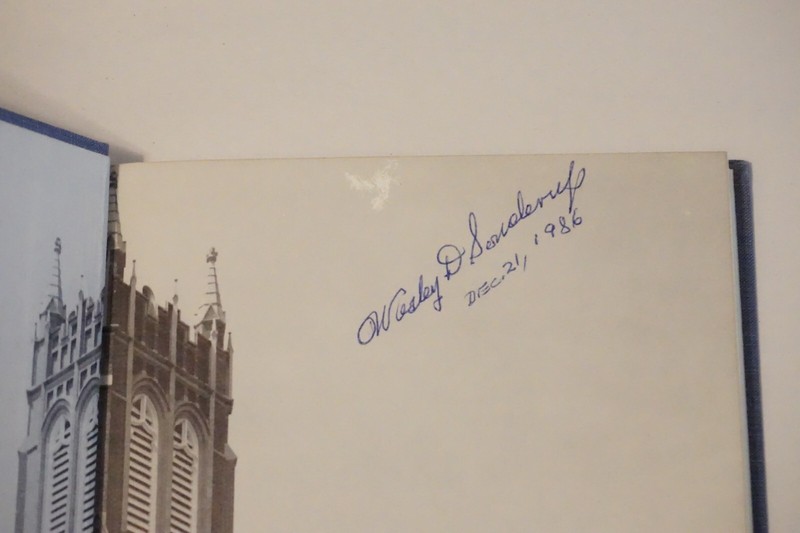 Wesley D Sonderup
DEC. 21, 1986